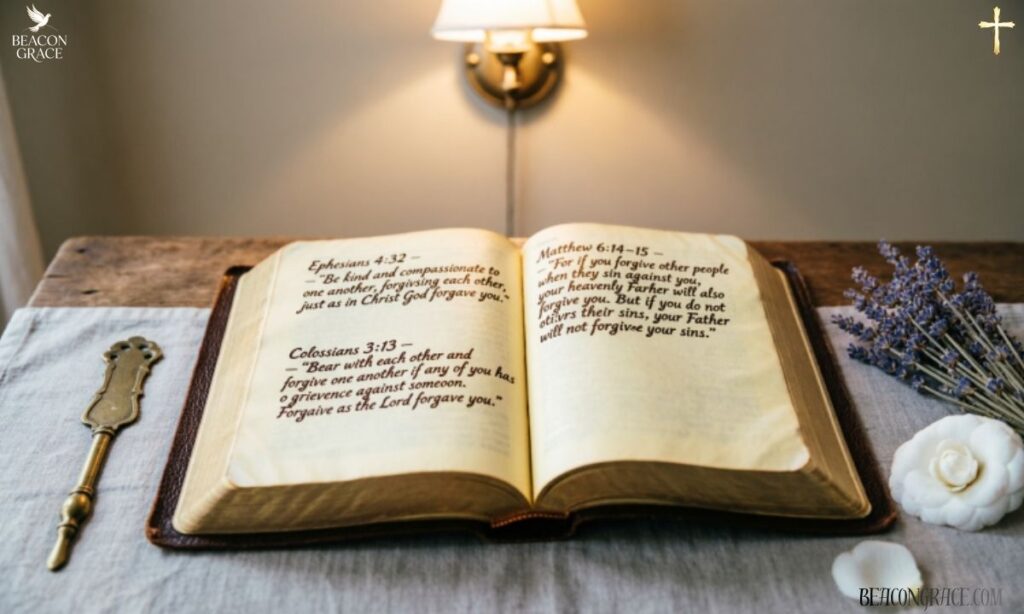 BEACON
GRACE
Ephesians 4:32 —
— "Be kind and compassionate to
one another, forgivsing each other,
just as in Christ God forgave you."
Colossians 3:13 —
— "Bear with each other and
forgive one another if any of you has
o grievence against someoon.
Forgaive as the Lord forgave you."
Matthew 6:14–15 —
— "For if you forgive other people
when they sin against you,
your heavenly Farher will also
forgive you. But if you do not
their sins, your Father
will not forgive your sins."
BEACONGRACE.COM